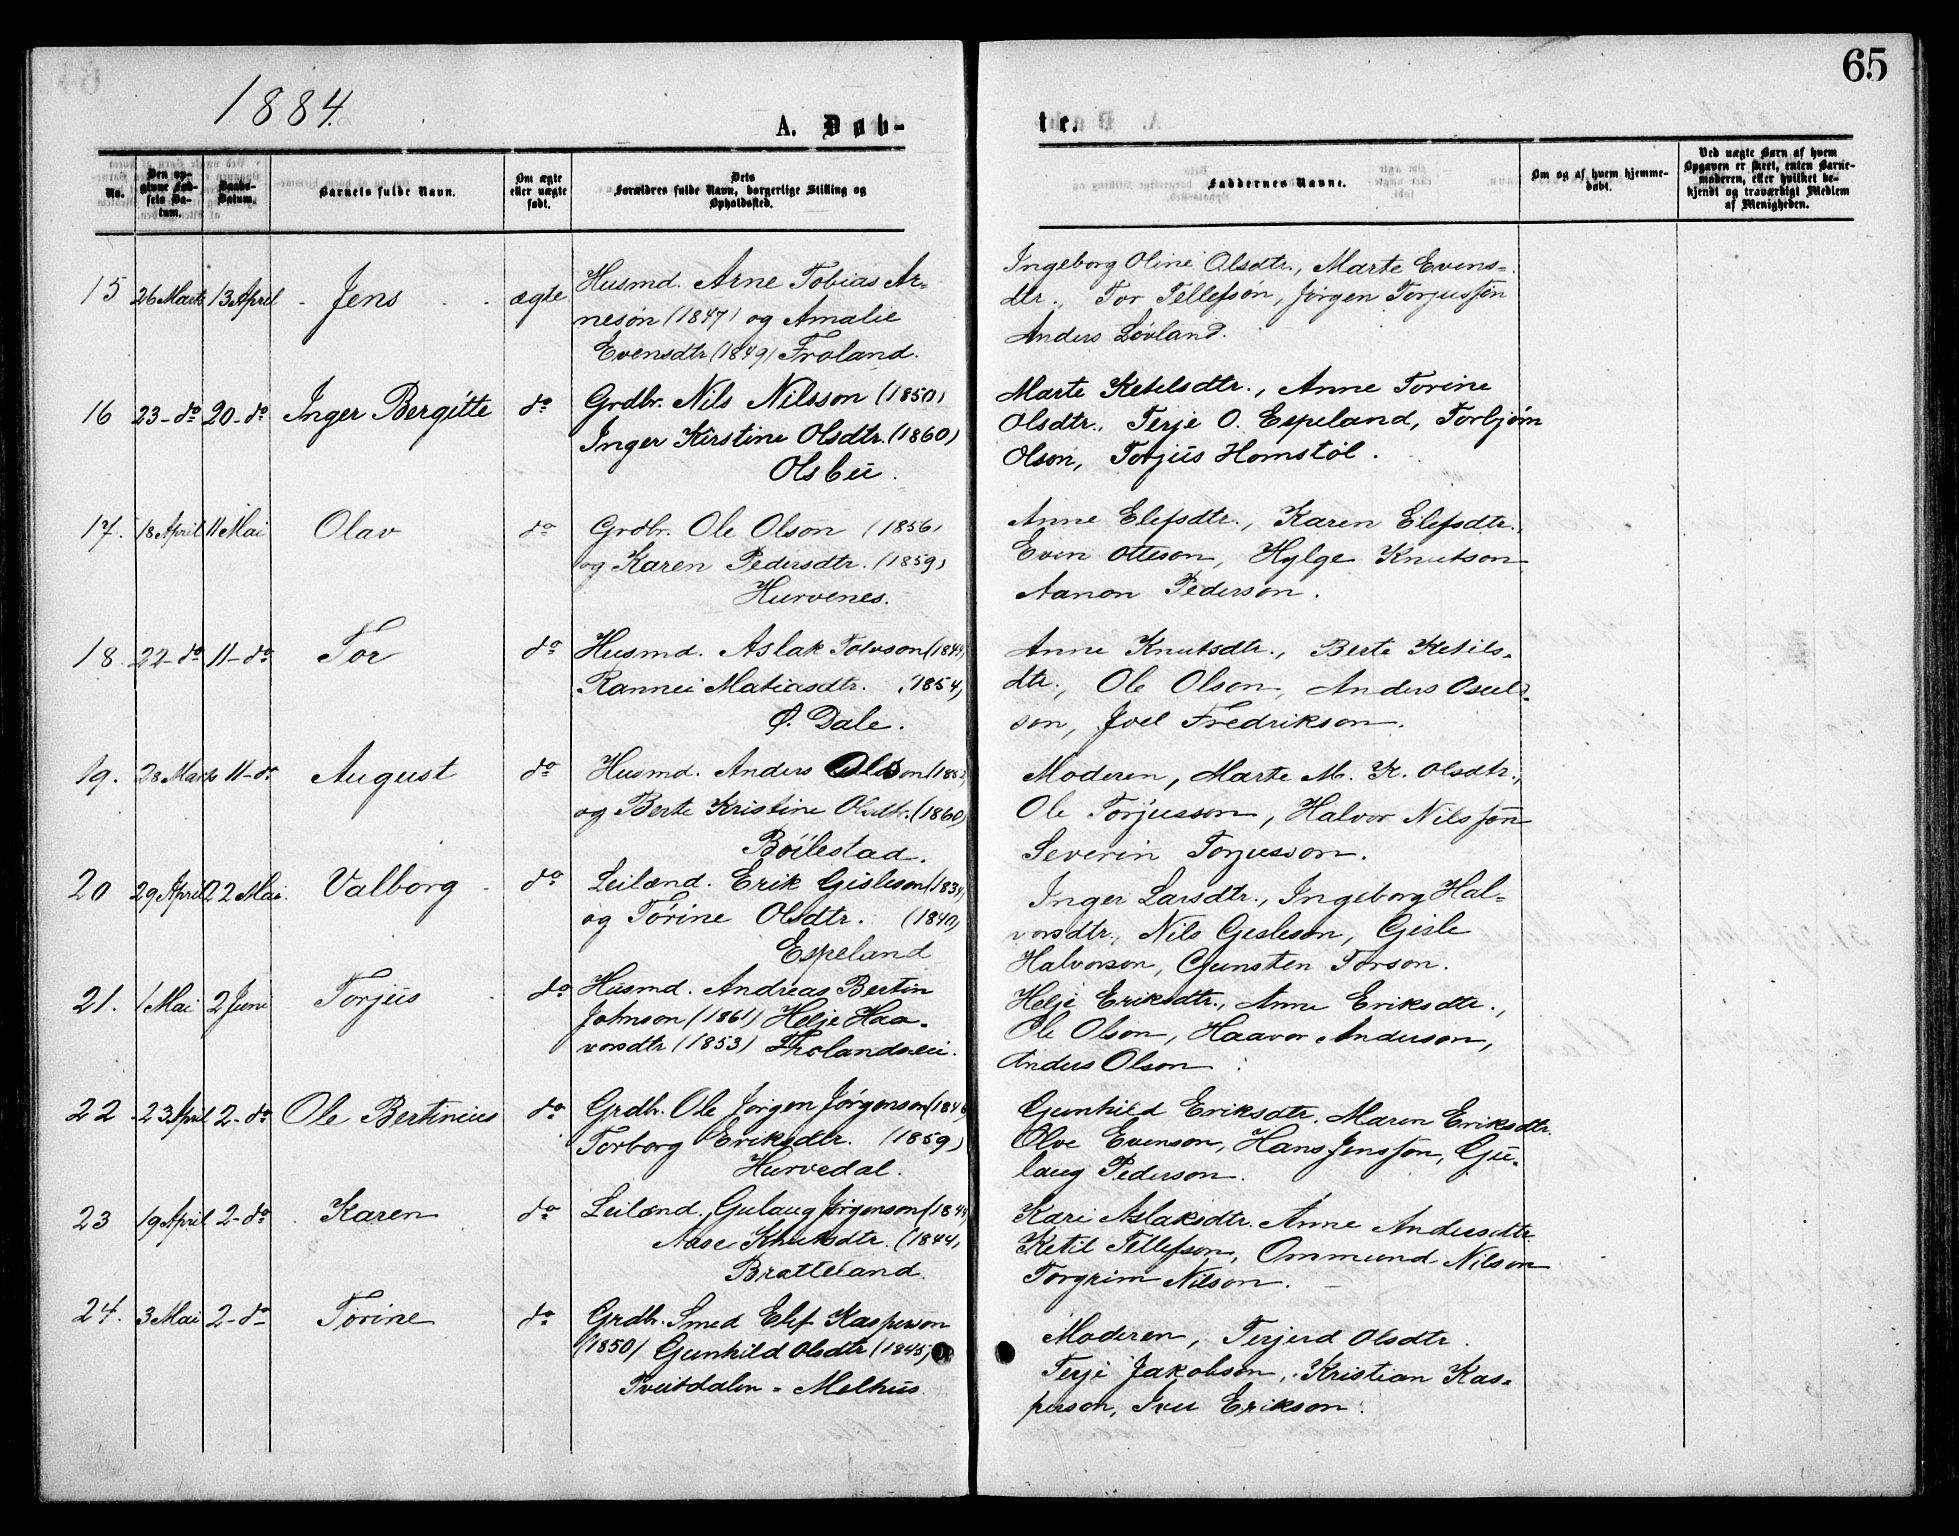 65
1884.
A. Døb-
te.
No.
Den op-
givne Fød-
sels Da-
tum.
Daabs-
Datum.
Barnets fulde Navn.
Om ægte
eller uægte
født.
Dets
Forældres fulde Navn, borgerlige Stilling og
Opholdssted.
Faddernes Navne.
Om og af hvem hjemme-
døbt.
Ved uægte Børn af hvem
Opgaven er skeet, enten Barne-
moderen, eller hvilket be-
kjendt og troværdigt Medlem
af Menigheden.
15 26 Marts 13 April Jens ægte
Husmd. Arne Tobias Ar-
nesøn (1847) og Amalie
Evensdtr (1849) Froland.
Ingeborg Oline Olsdtr., Marte Evens-
dtr., Tor Tellefsøn, Jørgen Torjussøn
Anders Løvland.
16 23-do 20-do Inger Bergitte do
Grdbr. Nils Nilsson (1850)
Inger Kirstine Olsdtr. (1860)
Olsbu.
Marte Ketelsdtr., Anne Torine
Olsdtr., Terje O. Espeland, Torbjørn
Olson, Torjus Homstøl.
17. 18 April 11 Mai Olav do
Grdbr. Ole Olson (1856)
og Karen Pedersdtr. (1859)
Hurvenes.
Anne Elefsdtr., Karen Elefsdtr.,
Even Otteson, Hylge Knutson
Aanon Pederson.
18. 22-do 11-do Tor do
Husmd. Aslak Tolvson
Rannei Matiasdtr. (1854)
Ø. Dale.
Anne Knutsdtr., Berte Ketils-
dtr., Ole Olson, Anders Osul-
son, Joel Fredrikson.
19. 28 Marts 11-do August do
Husmd. Anders Olsson
og Berte Kristine Olsdtr. (1860)
Bøilestad.
Moderen, Marte M. K. Olsdtr.,
Ole Torjusson, Halvor Nilssøn
Severin Torjusson.
20 29 April 22 Mai. Valborg do
Leilænd. Erik Gisleson (1834)
og Tørine Olsdtr. (1840)
Espeland
Inger Larsdtr., Ingeborg Hal-
vorsdtr., Nils Gisleson, Gisle
Halvorson, Gunsten Torson.
21. 1 Mai 2 Juni Torjus do
Husmd. Andreas Bertin
Johnson (1861) Helje Haa-
vorsdtr (1853) Frolandsei.
Helje Eriksdtr., Anne Eriksdtr.,
Ole Olson, Haavor Anderson,
Anders Olson
22 23 April 2-do Ole Bertinius do
Grdbr. Ole Jørgen Jørgenson
Torborg Eriksdtr. (1859)
Hurvedal.
Gunhild Eriksdtr. Maren Eriksdtr.
Olve Evenson, Hans Jenssøn, Gu-
laug Pederson.
23 19 April 2-do Karen do
Leilænd. Gulaug Jørgenson
Aase Knutsdtr. (1844)
Bratteland.
Kari Aslaksdtr. Anne Andersdtr.
Ketil Tellefson, Ommund Nilson
Torgrim Nilson.
24. 3 Mai 2-do Tørine do
Grdbr. Smed Elef Kasperson
(1850) Gunhild Olsdtr (1845)
Tveitdalen - Melhus.
Moderen, Terjerd Olsdtr.
Terje Jakobson, Kristian Kas-
person, Iver Erikson.